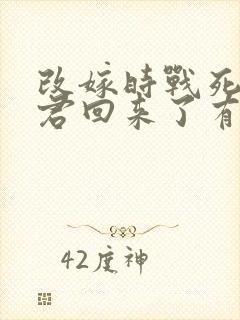 改嫁时戰死
君回来了有
42度神